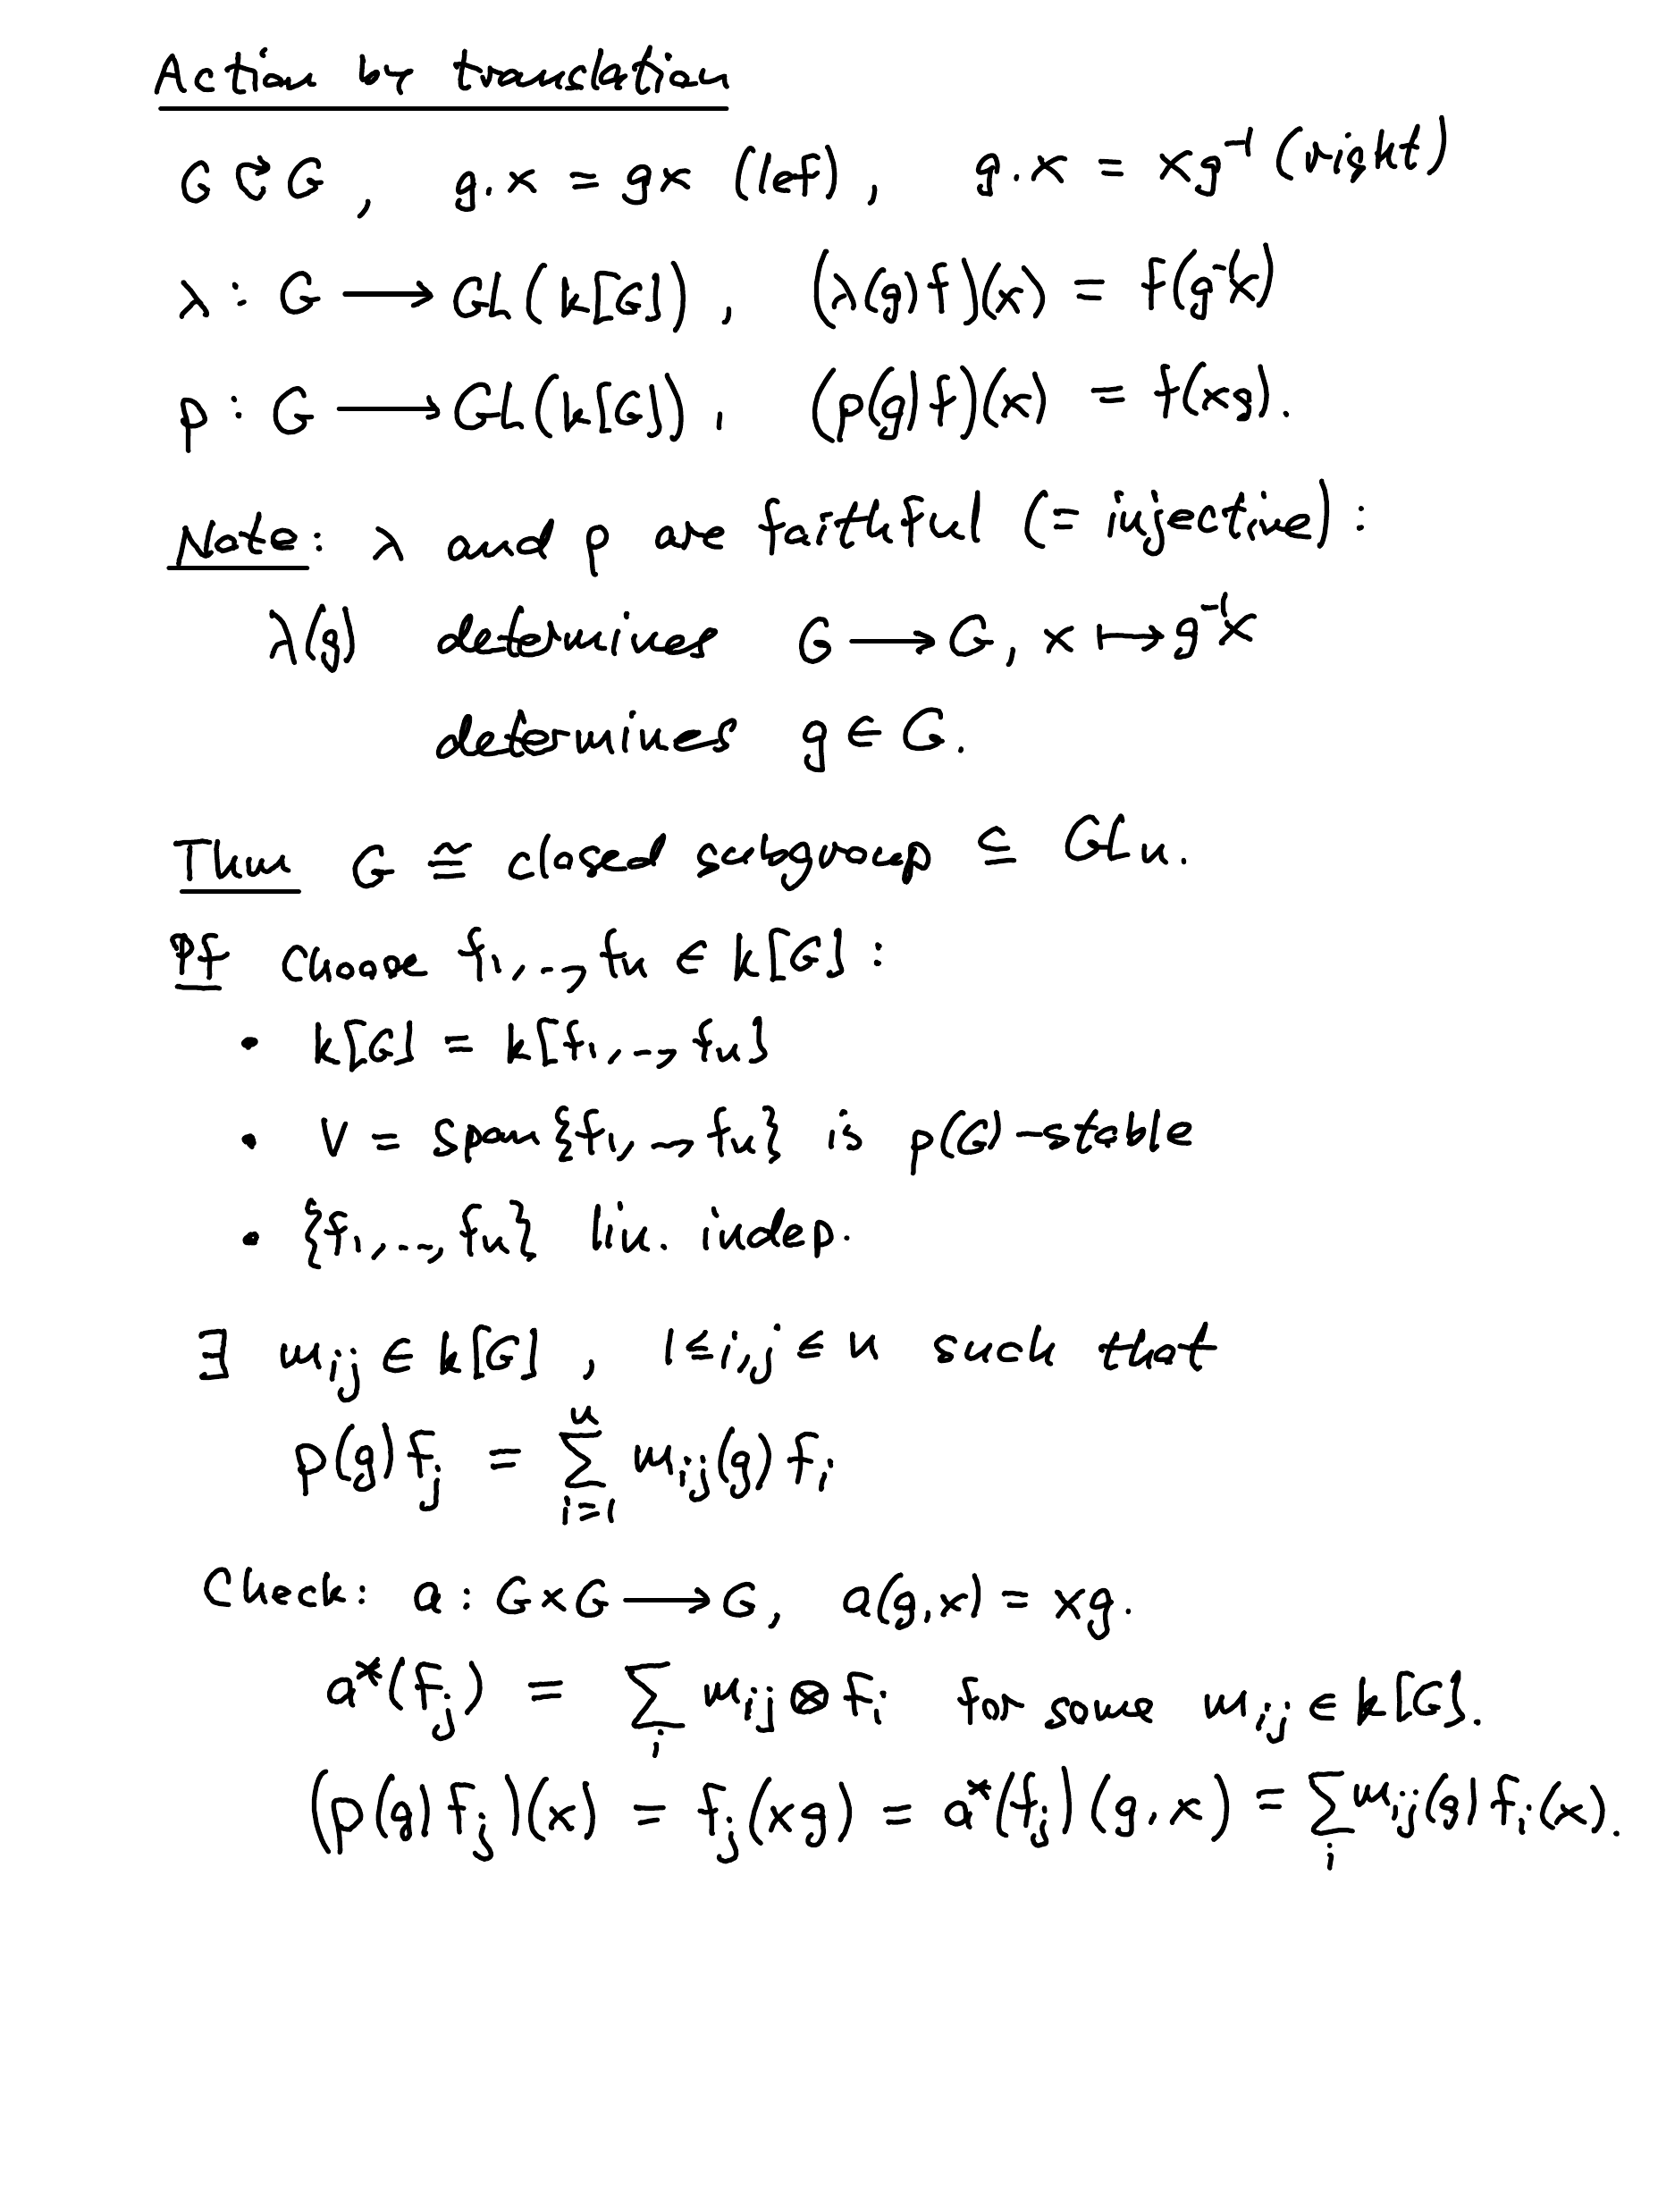 Action by translation
G ⟳ G , g.x = gx (lef) , g.x = xg⁻¹ (right)
λ : G ⟶ GL(k[G]) , (λ(g)f)(x) = f(g⁻¹x)
ρ : G ⟶ GL(k[G]) , (ρ(g)f)(x) = f(xg).
Note: λ and ρ are faithful (= injective) :
λ(g) determines G ⟶ G, x ⟼ g⁻¹x
determines g ∈ G.
Thm G ≅ closed subgroup ⊆ GLn.
Pf Choose f₁,..,fn ∈ k[G] :
• k[G] = k[f₁,..,fn]
• V = span{f₁,..,fn} is ρ(G)-stable
• {f₁,...,fn} lin. indep.
∃ mij ∈ k[G] , 1≤i,j≤n such that
ρ(g)fj = ∑ⁿᵢ₌₁ mij(g) fi
Check: a : G×G ⟶ G, a(g,x) = xg.
a*(fj) = ∑ᵢ mij ⊗ fi for some mij ∈ k[G].
(ρ(g)fj)(x) = fj(xg) = a*(fj)(g,x) = ∑ᵢ mij(g) fi(x).